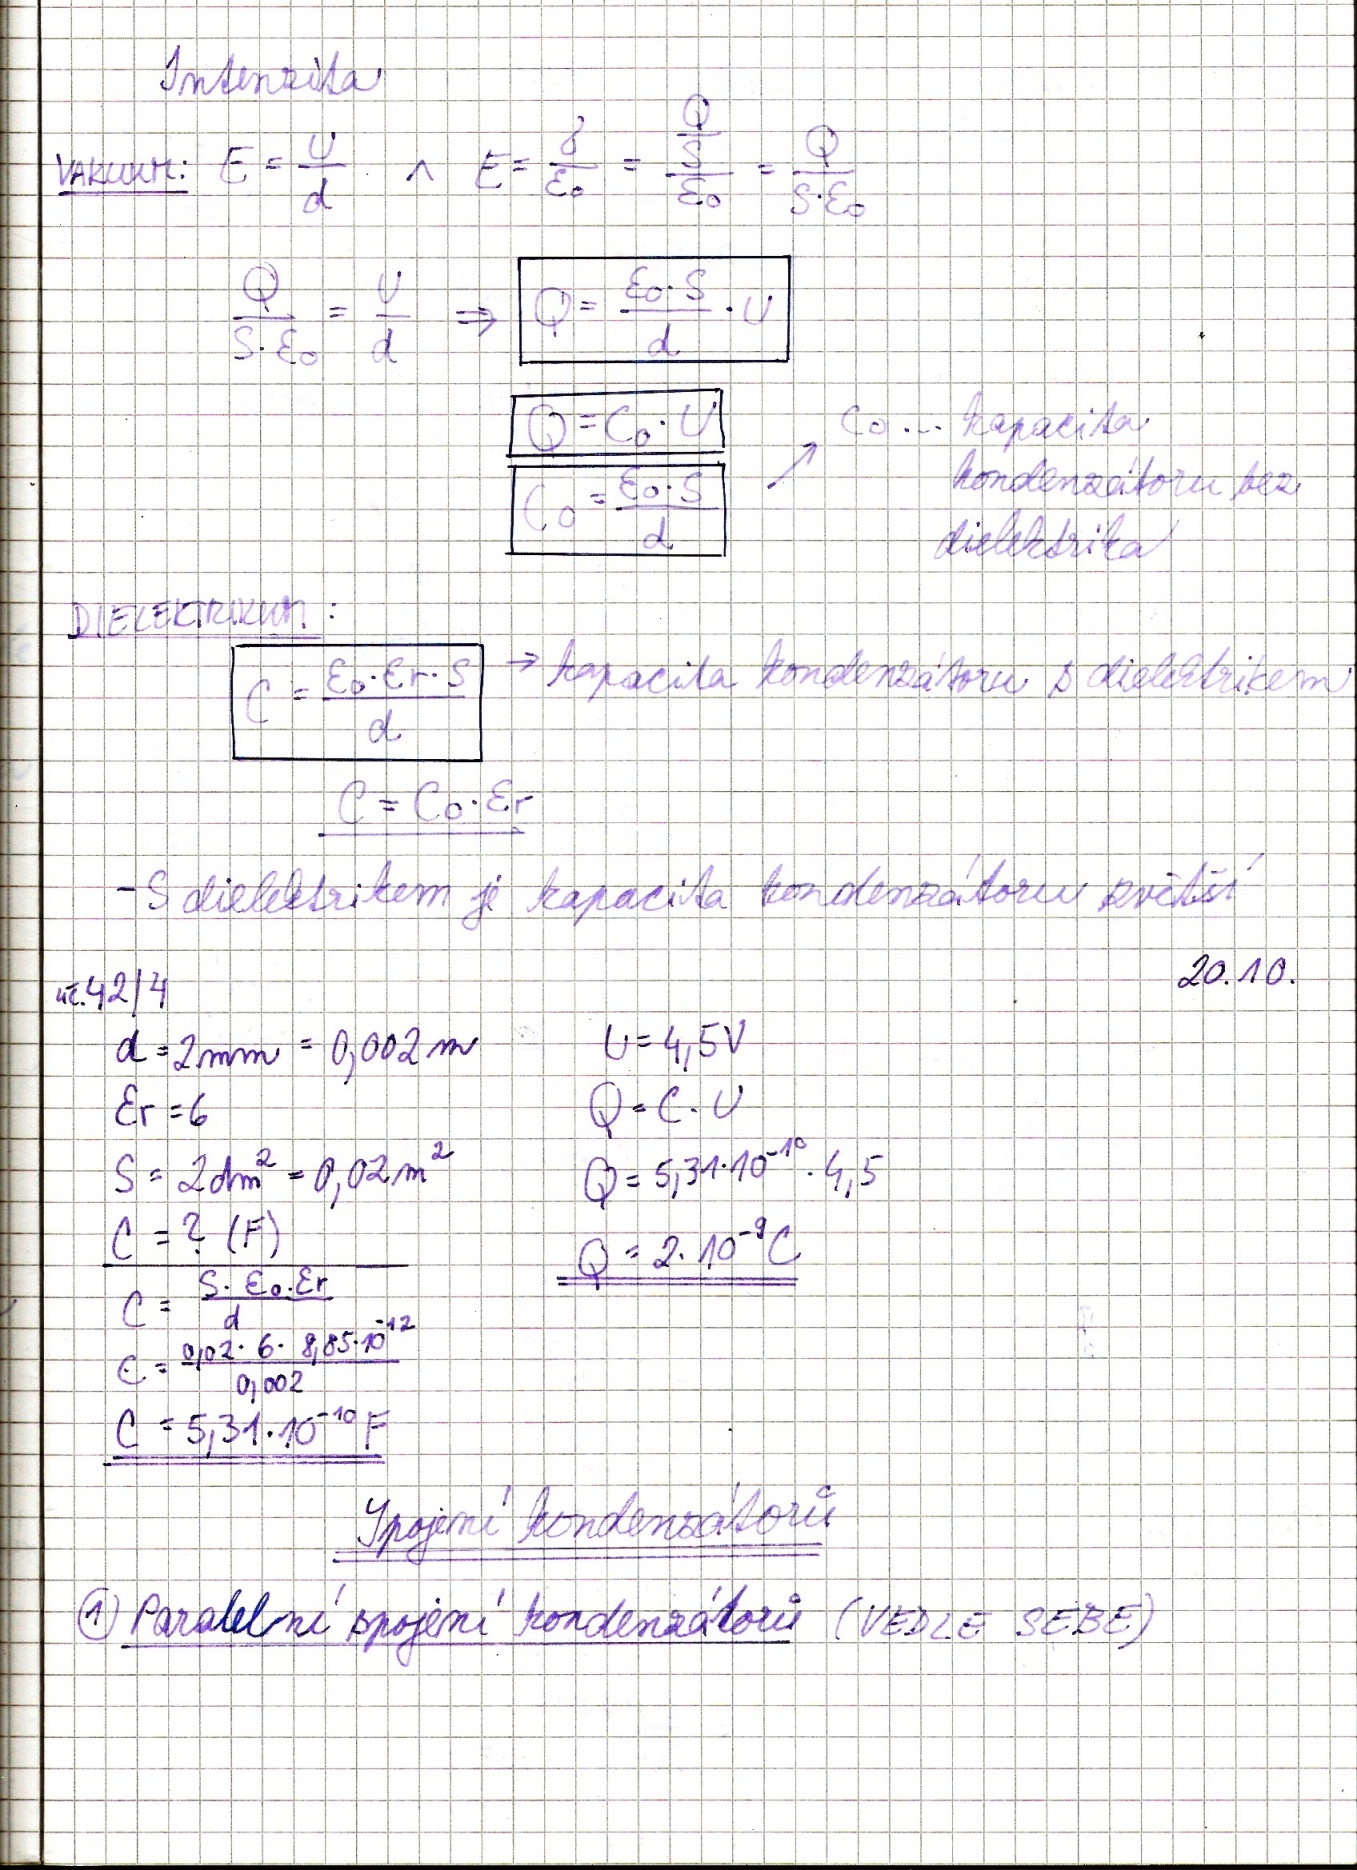 Intenzita
VAKUUM: E = U/d ∧ E = δ/ε0 = (Q/S)/ε0 = Q/(S·ε0)
Q/(S·ε0) = U/d ⇒ Q = (ε0·S)/d · U
Q = C0·U
C0 = (ε0·S)/d ↗ C0 ... kapacita
kondenzátoru bez
dielektrika
DIELEKTRIKUM:
C = (ε0·εr·S)/d → kapacita kondenzátoru s dielektrikem
C = C0·εr
- S dielektrikem je kapacita kondenzátoru zvětší
20.10.
uč.42/4
d = 2mm = 0,002 m
εr = 6
S = 2dm² = 0,02 m²
C = ? (F)
C = (S·ε0·εr)/d
C = (0,02·6·8,85·10⁻¹²)/0,002
C = 5,31·10⁻¹⁰ F
U = 4,5V
Q = C·U
Q = 5,31·10⁻¹⁰·4,5
Q = 2·10⁻⁹ C
Spojení kondenzátorů
1) Paralelní spojení kondenzátorů (VEDLE SEBE)